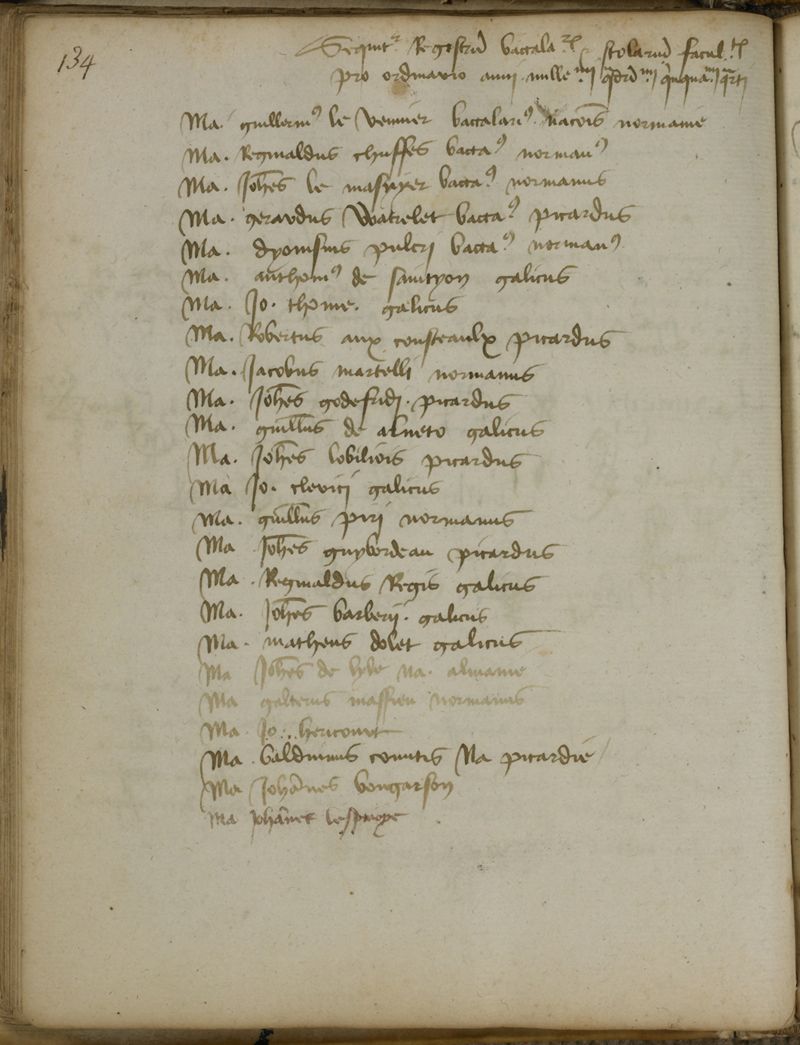 134
Sequit^r Registrũ baccala^rl & scolariũ facul^tl
pro ordinario anni mille^mi q̃drĩ^mi q̃nqua^mi q̃rti
Ma. guillerm⁹ le Vennier baccalari⁹ nacõis normanie
Ma. Reginaldus chuffes bacca⁹ norman⁹
Ma. Joh̃es le masuyer bacca⁹ normanus
Ma. gerardus Watrelet bacca⁹ picardus
Ma. dyonisius pulcri bacca⁹ norman⁹
Ma. anthoni⁹ de sainctyon galicus
Ma. Jo. thome. galicus
Ma. Robertus aux cousteaulx picardus
Ma. Jacobus martelli normanus
Ma. Joh̃es godefridi. picardus
Ma. guill̃us de alneto galicus
Ma. Joh̃es lobiliois picardus
Ma Jo. clerici galicus
Ma. guill̃us piri normanus
Ma Joh̃es guybordeau picardus
Ma. Reginaldus Regis galicus
Ma. Joh̃es barberij. galicus
Ma. matheus dolet galicus
Ma Joh̃es de na. almanie
Ma galterus massieu normanus
Ma. Jo... hericourt
Ma. balduinus comitis Na picardie
Ma Johãnes bougarson
Ma Johãnes